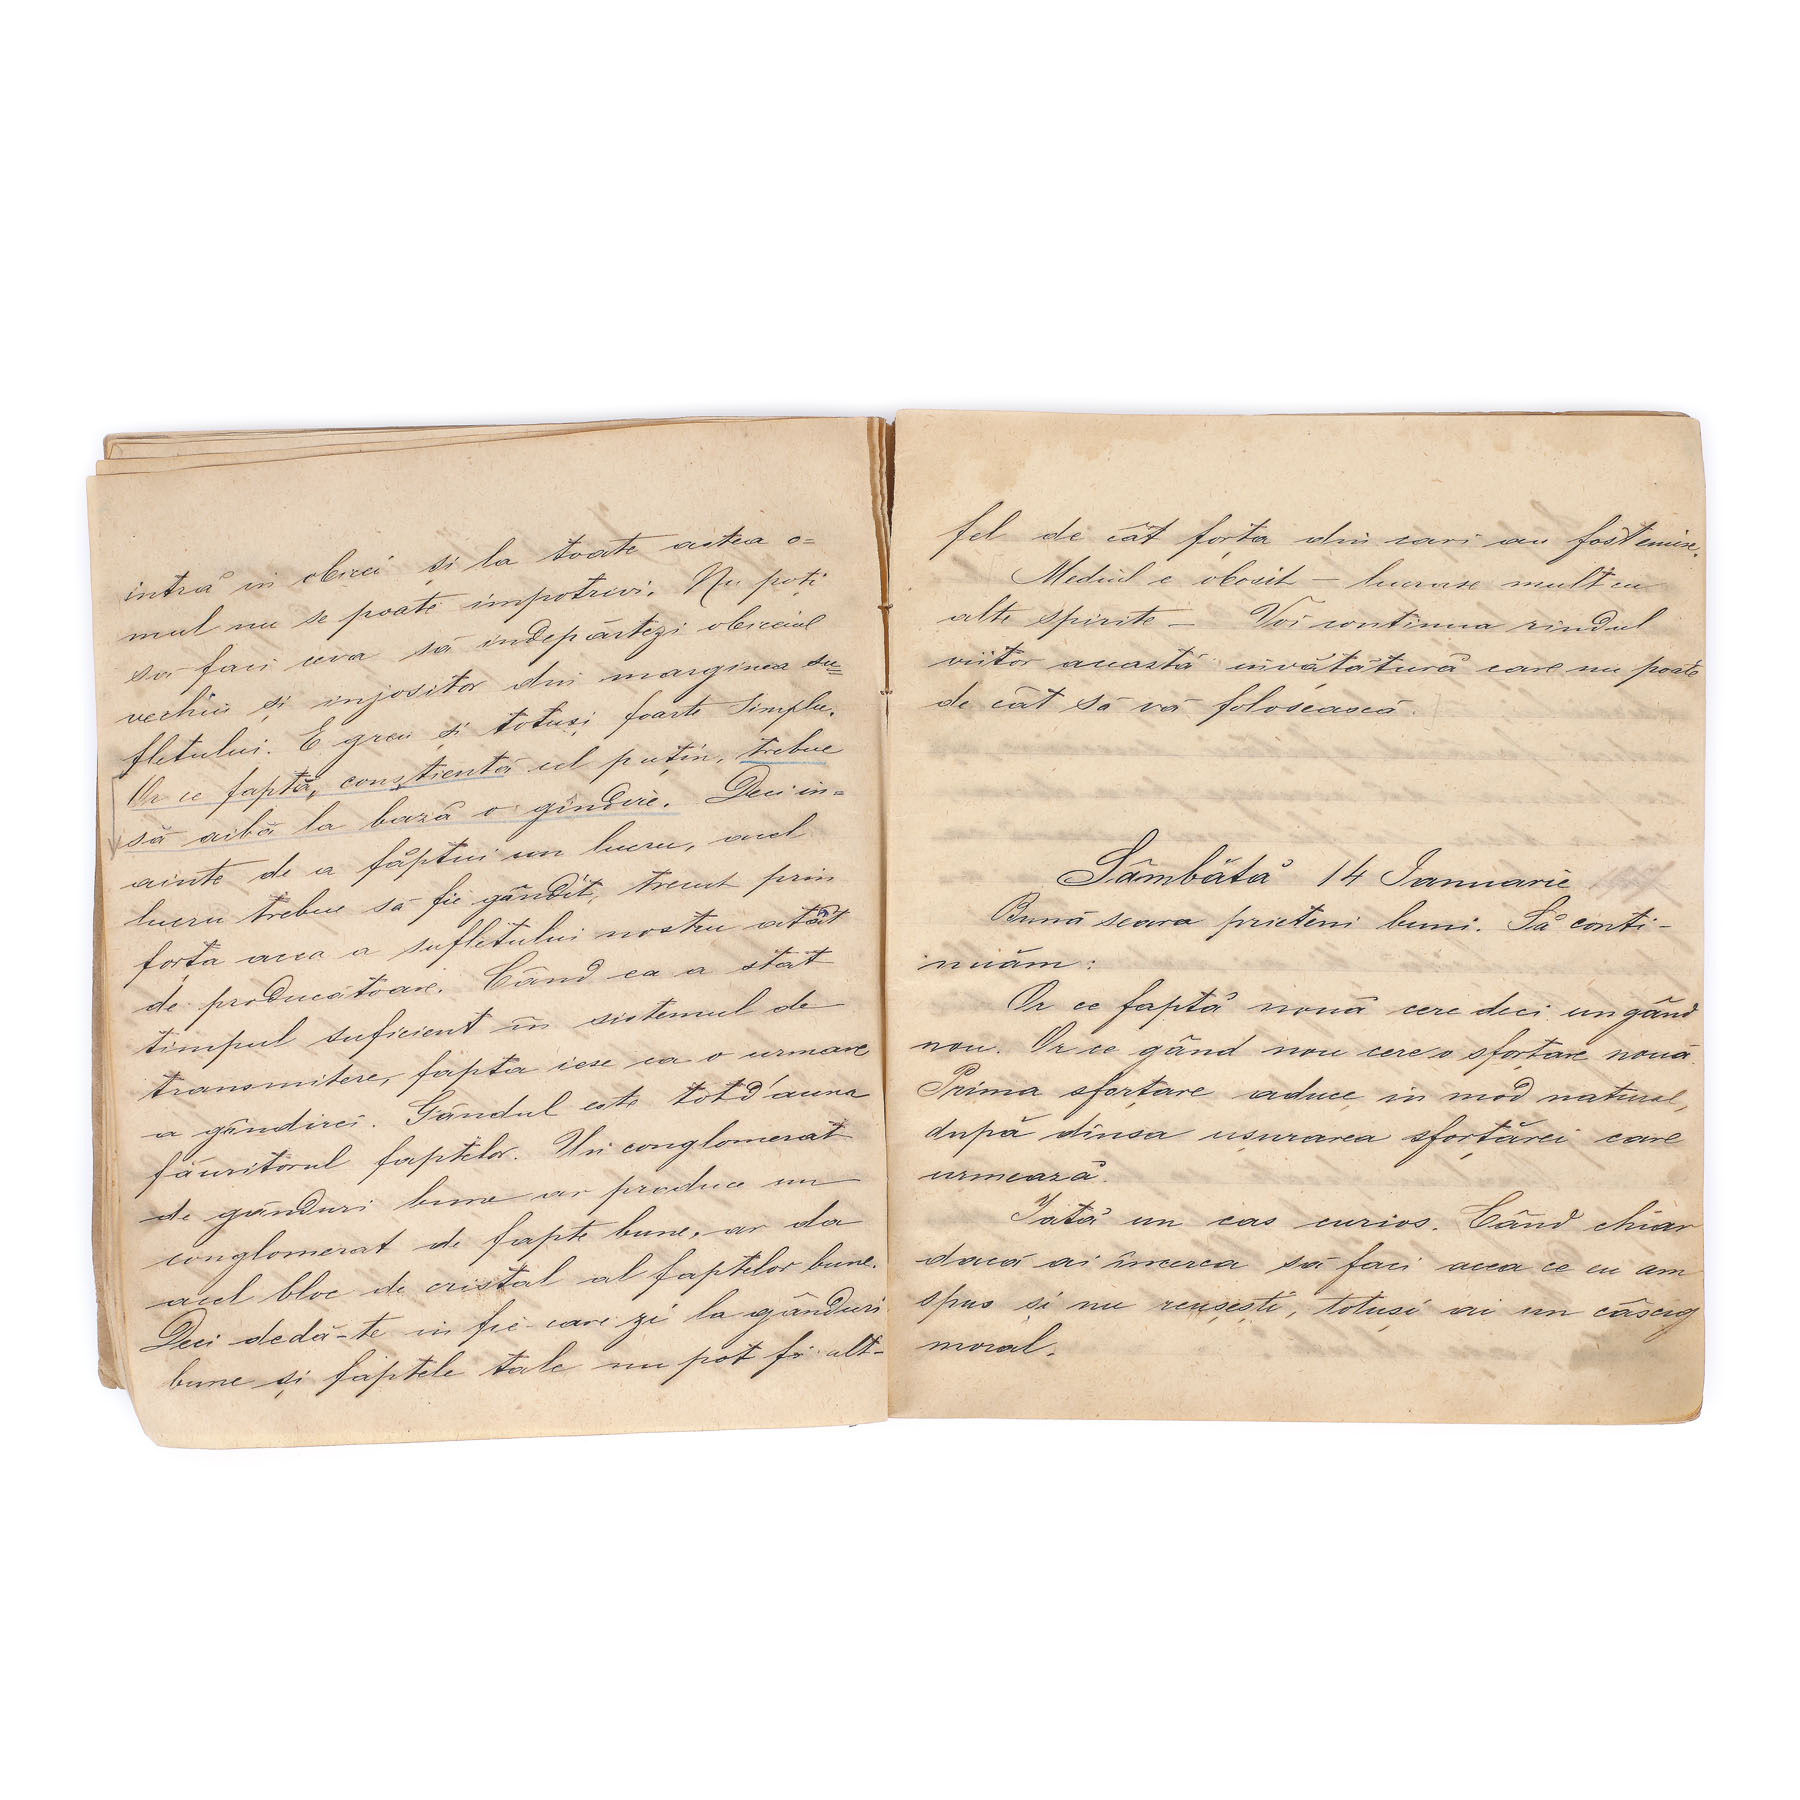 intră in obicei și la toate astea o=
mul nu se poate impotrivi. Nu poți
să faci ceva să indepărtezi obiceiul
vechiu și injositor din marginea su=
fletului. E greu și totuși foarte simplu.
Or ce faptă, conștientă cel puțin, trebue
să aibă la bază o gîndire. Deci in=
ainte de a făptui un lucru, acel
lucru trebue să fie gândit, trecut prin
forța aceea a sufletului nostru atât
de producătoare. Când ea a stat
timpul suficient în sistemul de
transmitere, fapta iese ca o urmare
a gândirei. Gândul este totd'auna
făuritorul faptelor. Un conglomerat
de gânduri bune ar produce un
conglomerat de fapte bune, ar da
acel bloc de cristal al faptelor bune.
Deci dedă-te in fie-care zi la gânduri
bune și faptele tale nu pot fi alt-
fel de cât forța din cari au fost emise.
Mediul e obosit - lucrase mult cu
alte spirite - Voi continua rîndul
viitor această învățătură care nu poate
de cât să vă folosească.
Sâmbătă 14 Ianuarie
Bună seara prieteni buni. Să conti-
nuăm:
Or ce faptă nouă cere deci un gând
nou. Or ce gând nou cere o sforțare nouă.
Prima sforțare aduce in mod natural,
după dînsa ușurarea sforțărei care
urmează.
Iată un cas curios. Când chiar
dacă ai încerca să faci aceea ce eu am
spus și nu reușești, totuși ai un câscig
moral.